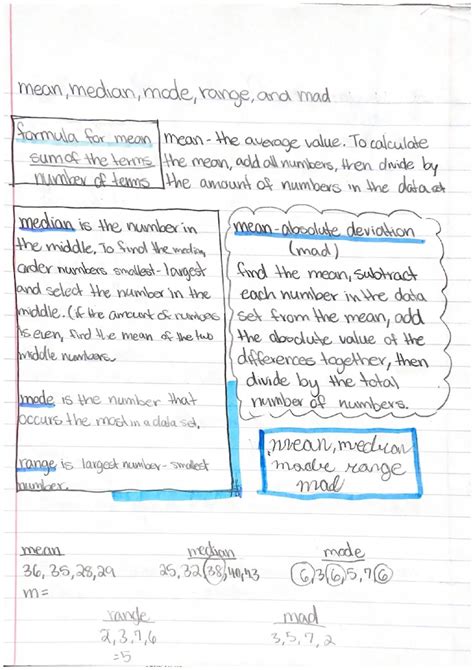 mean, median, mode, range, and mad
formula for mean
sum of the terms
number of terms
mean - the average value. To calculate
the mean, add all numbers, then divide by
the amount of numbers in the data set
median is the number in
the middle. To find the median,
order numbers smallest - largest
and select the number in the
middle. (if the amount of numbers
is even, find the mean of the two
middle numbers.
mode is the number that
occurs the most in a data set.
range is largest number - smallest
number.
mean - absolute deviation
(mad)
find the mean, subtract
each number in the data
set from the mean, add
the absolute value of the
differences together, then
divide by the total
number of numbers.
mean, median
mode range
mad
mean
36, 35, 28, 29
m=
median
25, 32, 38, 40, 43
mode
6, 3, 6, 5, 7, 6
range
2, 3, 7, 6
=5
mad
3, 5, 7, 2